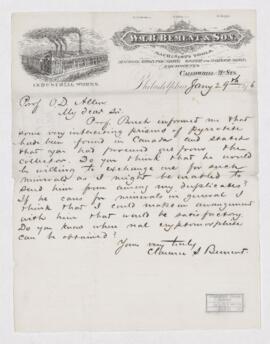 WM. B. BEMENT & SON,
MACHINISTS' TOOLS,
CALLOWHILL
INDUSTRIAL WORKS.
Philadelphia, Jany 29th
Prof O D Allen
My dear Sir
Prof. Brush informs me that
some very interesting prisms of pyroxene
have been found in Canada and states
that you had received one from the
collector. Do you think that he would
be willing to exchange one for such
minerals as I might be enabled to
send him from among my duplicates?
If he cares for minerals in general I
think that I could make an arrangement
with him that would be satisfactory
Do you know where real cryptomorphite
can be obtained?
Yours very truly
Clarence S Bement.